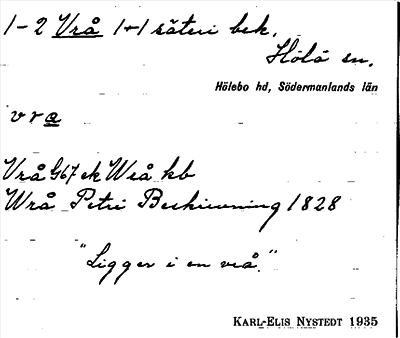 1-2 Vrå 1+1 säteri bek.
Hölö sn.
Hölebo hd, Södermanlands län
v r a
Vrå G67 ek Wrå kb
Wrå Petri Beskrivning 1828
"Ligger i en vrå."
KARL-ELIS NYSTEDT 1935